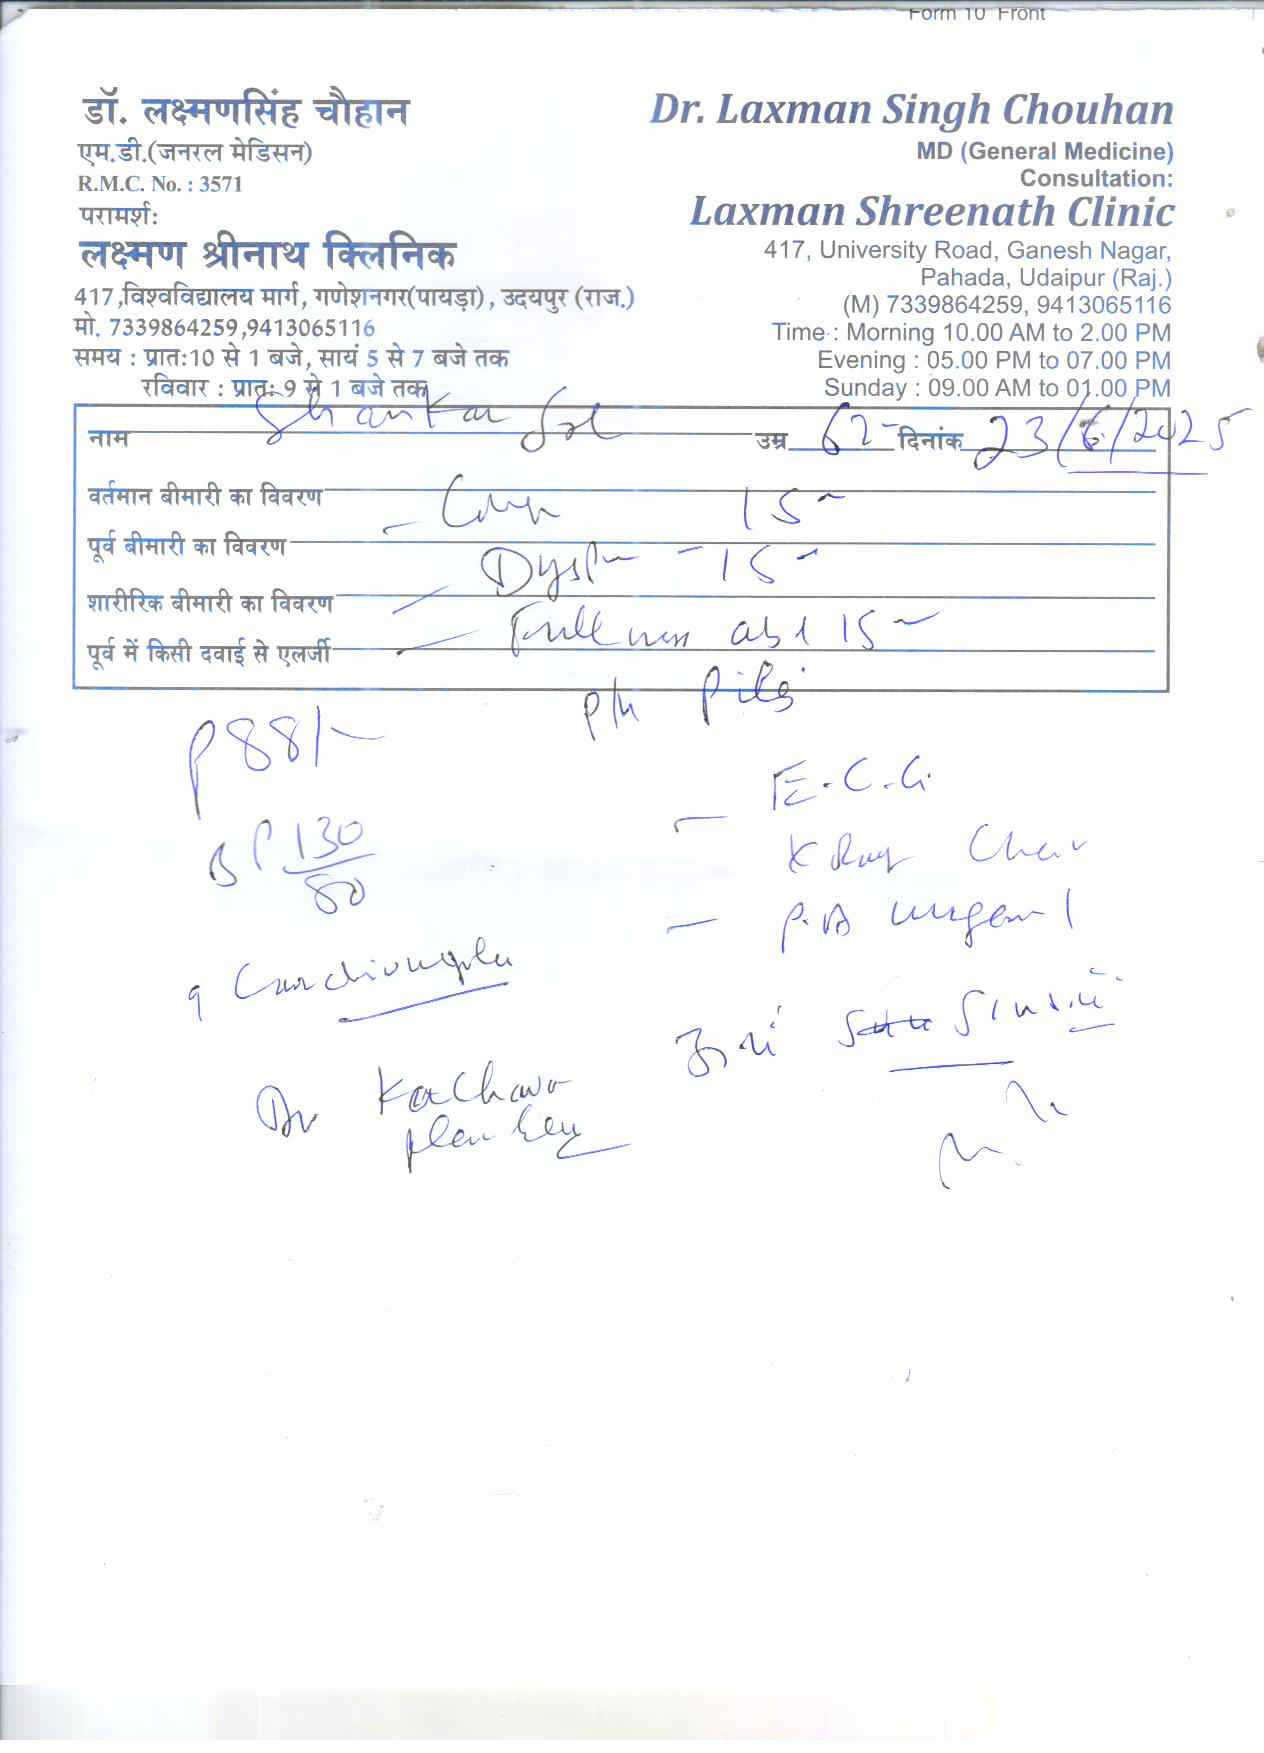 Form 10 Front
डॉ. लक्ष्मणसिंह चौहान
एम.डी.(जनरल मेडिसन)
R.M.C. No. : 3571
परामर्श:
लक्ष्मण श्रीनाथ क्लिनिक
417,विश्वविद्यालय मार्ग, गणेशनगर(पायड़ा), उदयपुर (राज.)
मो. 7339864259,9413065116
समय : प्रात:10 से 1 बजे, सायं 5 से 7 बजे तक
रविवार : प्रात: 9 से 1 बजे तक
Dr. Laxman Singh Chouhan
MD (General Medicine)
Consultation:
Laxman Shreenath Clinic
417, University Road, Ganesh Nagar,
Pahada, Udaipur (Raj.)
(M) 7339864259, 9413065116
Time : Morning 10.00 AM to 2.00 PM
Evening : 05.00 PM to 07.00 PM
Sunday : 09.00 AM to 01.00 PM
नाम Shankar उम्र 62 दिनांक 23/6/2025
वर्तमान बीमारी का विवरण 15
पूर्व बीमारी का विवरण 15
शारीरिक बीमारी का विवरण
पूर्व में किसी दवाई से एलर्जी Fullness abd 15
P/h Piles
P 88/-
E.C.G
BP 130/80
X Ray Chest
P.A urgent
Dr